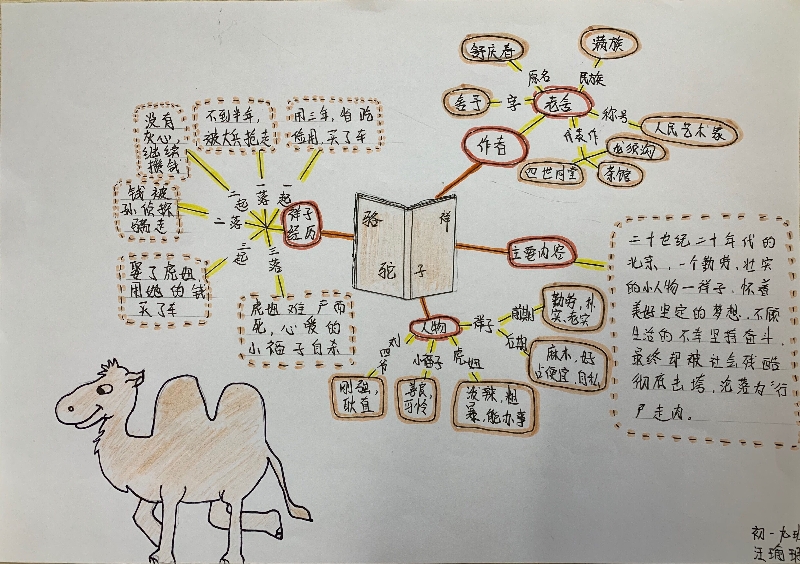 骆 祥
驼 子
作者
老舍
原名
舒庆春
民族
满族
字
舍予
称号
人民艺术家
代表作
四世同堂
龙须沟
茶馆
主要内容
二十世纪二十年代的
北京，一个勤劳，壮实
的小人物一祥子，怀着
美好坚定的梦想，不顾
生活的不幸坚持奋斗，
最终却被社会残酷
彻底击垮，沦落为"行
尸走肉。
人物
祥子
前期
勤劳，朴
实，老实
后期
麻木，好
占便宜，自私
虎妞
泼辣，粗
暴，能办事
小福子
善良，
可怜
刘
四
爷
刚强，
耿直
祥子
经历
一起
用三年，省吃
俭用，买了车
一落
不到半年，
被大兵抢走
二起
没有
灰心，
继续
攒钱
二落
钱被
孙侦探
骗走
三起
娶了虎妞
用她的钱
买了车
三落
虎妞难产而
死，心爱的
小福子自杀
初一九班